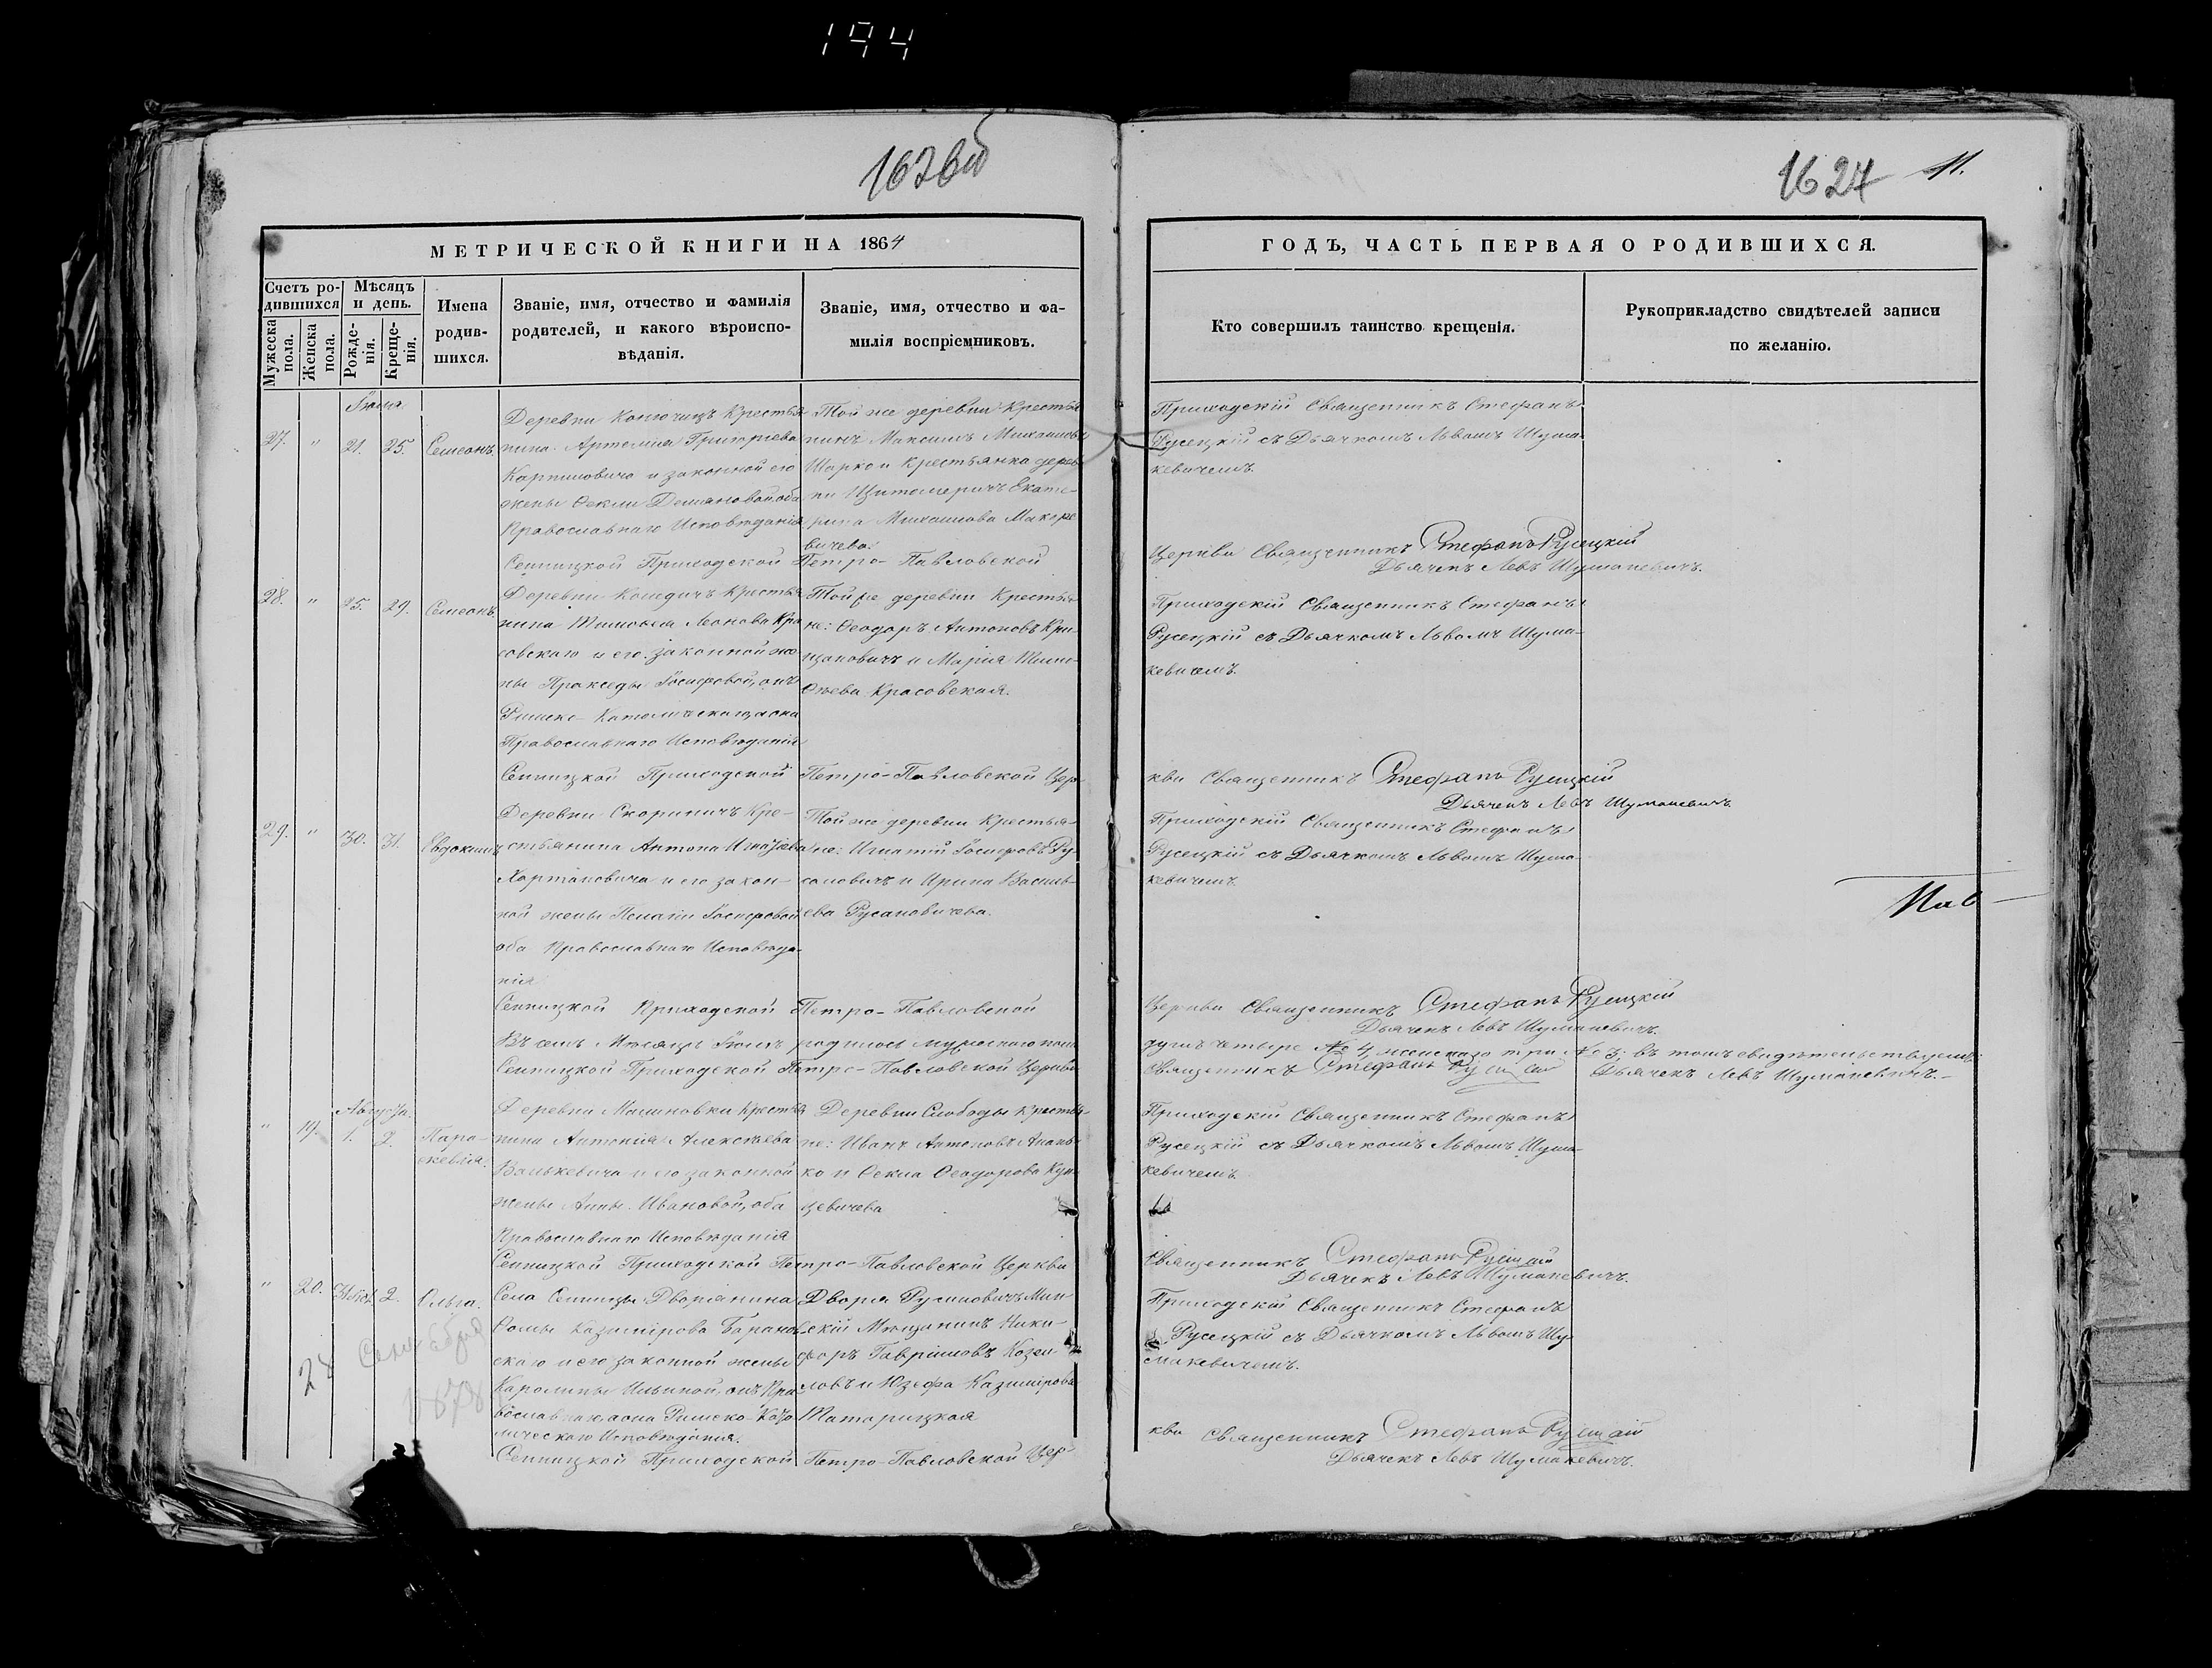 194
1626об
1627 11.
МЕТРИЧЕСКОЙ КНИГИ НА 1864
ГОДЪ, ЧАСТЬ ПЕРВАЯ О РОДИВШИХСЯ.
Счетъ ро-
дившихся
Мѣсяцъ
и день.
Мужеска
пола.
Женска
пола.
Рожде-
нія.
Креще-
нія.
Имена
родив-
шихся.
Званіе, имя, отчество и фамилія
родителей, и какого вѣроиспо-
вѣданія.
Званіе, имя, отчество и фа-
милія воспріемниковъ.
Кто совершилъ таинство крещенія.
Рукоприкладство свидѣтелей записи
по желанію.
Іюля
27. " 21. 25. Симеонъ.
Деревни Конючицъ Крестья
нина Артемія Григоріева
Картиловича и законной его
жены Феклы Демяновой, оба
Православнаго Исповѣданія
Той же деревни Крестья
нинъ Максимъ Михаиловъ
Шарко и Крестьянка дерев
ни Цитомеричъ Екате-
рина Михаилова Макоре
вичева.
Приходскій Священникъ Стефанъ
Русецкій съ Дьячкомъ Львомъ Шума-
кевичемъ.
Сенницкой Приходской Петро-Павловской
Церкви Священникъ Стефанъ Русецкій
Дьячекъ Левъ Шумакевичъ.
28. " 25. 29. Симеонъ.
Деревни Колядичъ Крестья
нина Тимофея Леонова Кра
совскаго и его законной же
ны Праксѣды Іосифовой, онъ
Римско-Католическаго, а она
Православнаго Исповѣданія
Той же деревни Крестья-
не: Феодоръ Антоновъ Кри-
щановичъ и Марія Тимо-
фѣева Красовская.
Приходскій Священникъ Стефанъ
Русецкій съ Дьячкомъ Львомъ Шума-
кевичемъ.
Сенницкой Приходской Петро-Павловской Цер-
кви Священникъ Стефанъ Русецкій
Дьячекъ Левъ Шумакевичъ.
29. " 30. 31. Евдокимъ
Деревни Скориничъ Кре-
стьянина Антона Игнатіева
Хартановича и его закон-
ной жены Пелагіи Іосифовой
оба Православнаго Исповѣда-
нія
Той же деревни Крестья-
не: Игнатій Іосифовъ Ру-
сановичъ и Ирина Василь-
ева Русановичева.
Приходскій Священникъ Стефанъ
Русецкій съ Дьячкомъ Львомъ Шума-
кевичемъ.
Сенницкой Приходской Петро-Павловской
Церкви Священникъ Стефанъ Русецкій
Дьячекъ Левъ Шумакевичъ.
Въ семъ Мѣсяцѣ Іюлѣ родилось мужескаго пола
душъ четыре № 4, женскаго три № 3; въ томъ свидѣтельствуемъ:
Сенницкой Приходской Петро-Павловской Церкви
Священникъ Стефанъ Русецкій
Дьячекъ Левъ Шумакевичъ.-
Августа.
" 19. 1. 2. Пара-
скевія.
Деревни Малиновки Крестья
нина Антонія Алексѣева
Валькевича и его законной
жены Анны Ивановой, оба
Православнаго Исповѣданія
Деревни Слободы Крестья-
не: Иванъ Антоновъ Апань-
ко и Фекла Феодорова Кун-
цевичева
Приходскій Священникъ Стефанъ
Русецкій съ Дьячкомъ Львомъ Шума-
кевичемъ.
Сенницкой Приходской Петро-Павловской Церкви
Священникъ Стефанъ Русецкій
Дьячекъ Левъ Шумакевичъ.
" 20. 2. Ольга.
Села Сенницы Дворянина
Фомы Казимірова Баранов
скаго и его законной жены
Каролины Ильиной, онъ Пра
вославнаго, а она Римско-Като
лическаго Исповѣданія.
Двора Русиновичъ Мин
скій Мѣщанинъ Ники-
форъ Гавріиловъ Козел-
ловъ и Юзефа Казимірова
Татарицкая
Приходскій Священникъ Стефанъ
Русецкій съ Дьячкомъ Львомъ Шу-
макевичемъ.
28 Сентября
1878
Сенницкой Приходской Петро-Павловской Цер-
кви Священникъ Стефанъ Русецкій
Дьячекъ Левъ Шумакевичъ.